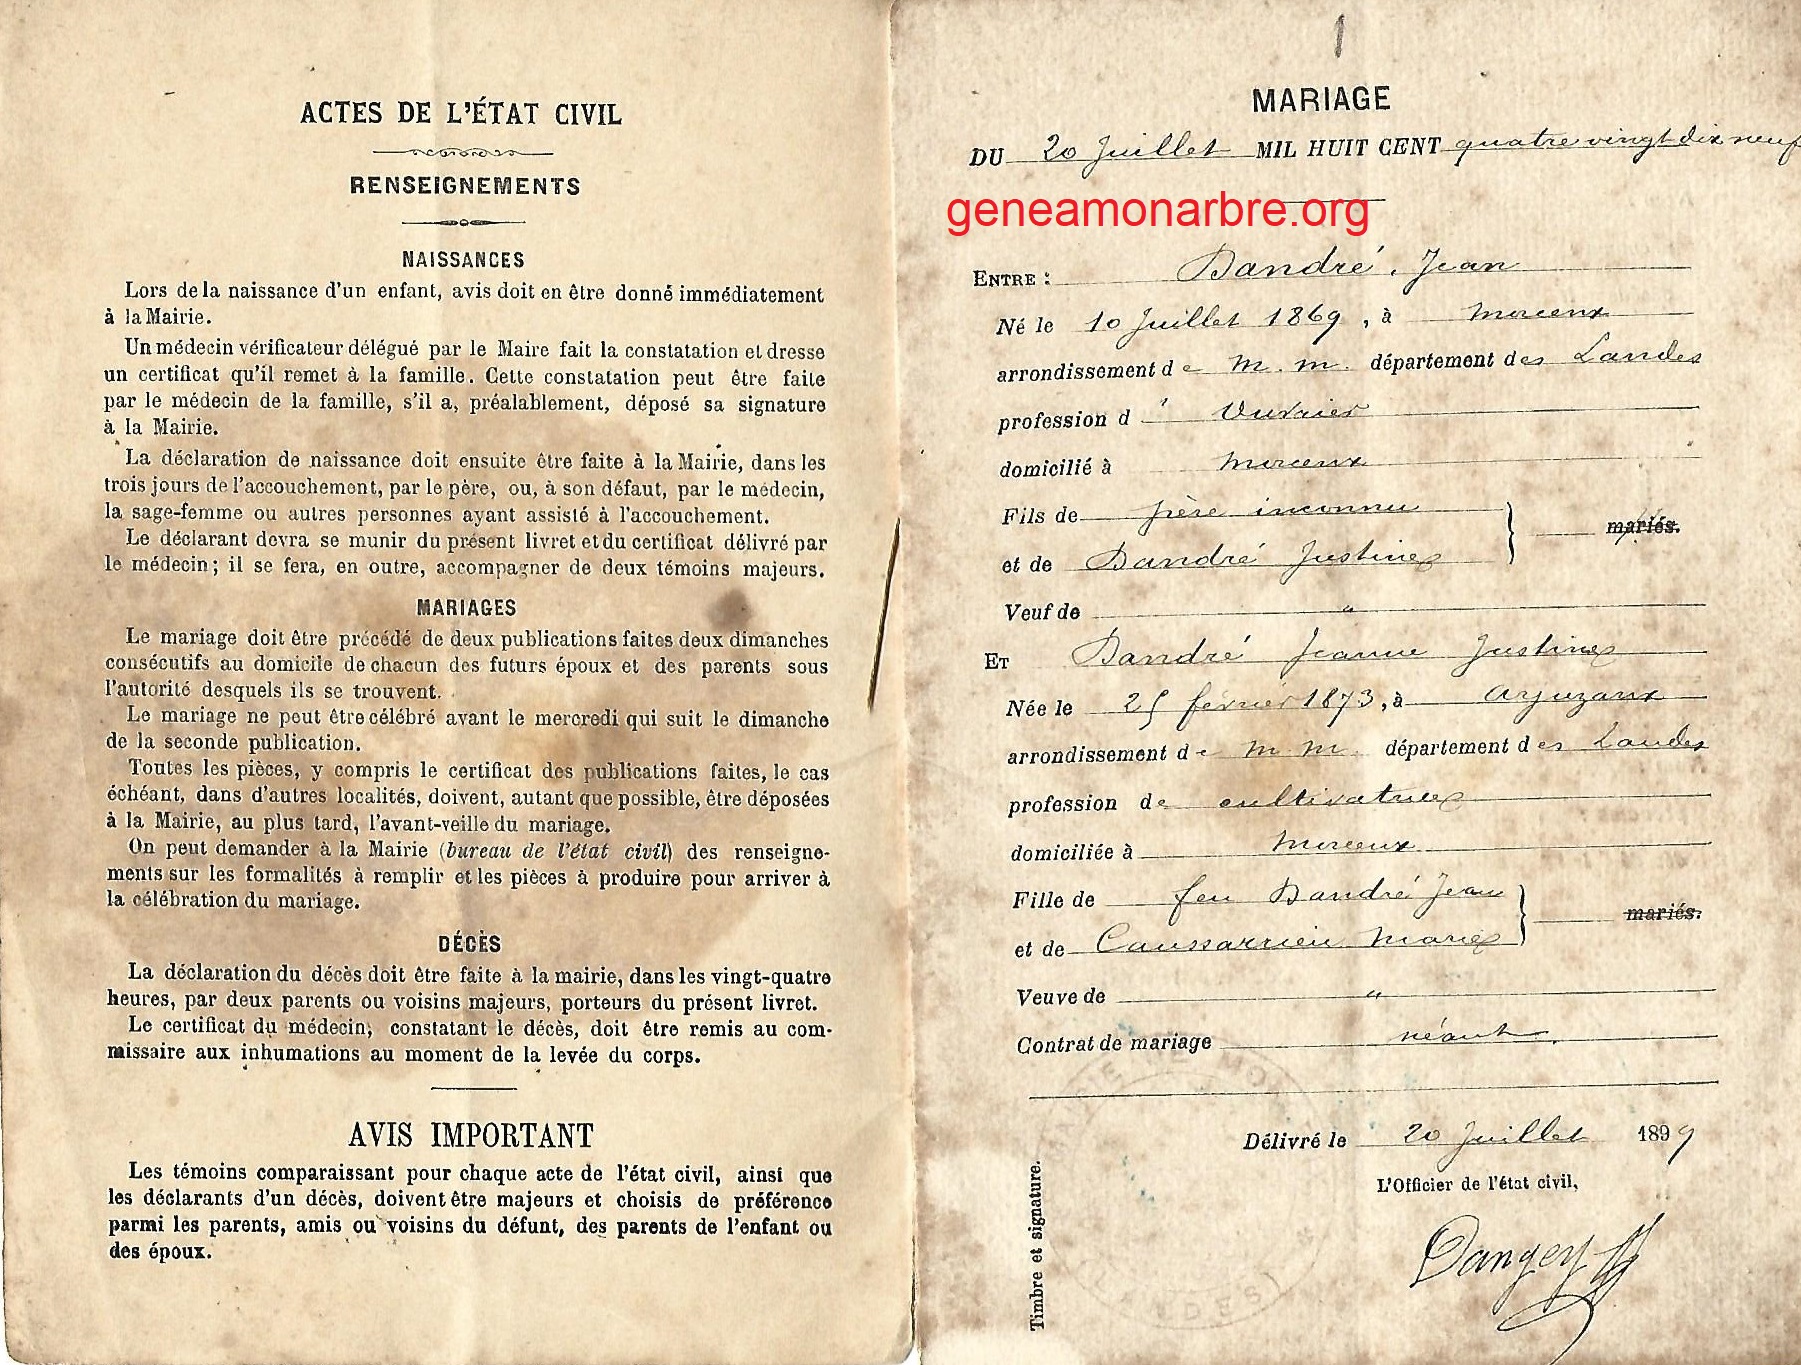 ACTES DE L'ÉTAT CIVIL
RENSEIGNEMENTS
NAISSANCES
Lors de la naissance d'un enfant, avis doit en être donné immédiatement
à la Mairie.
Un médecin vérificateur délégué par le Maire fait la constatation et dresse
un certificat qu'il remet à la famille. Cette constatation peut être faite
par le médecin de la famille, s'il a, préalablement, déposé sa signature
à la Mairie.
La déclaration de naissance doit ensuite être faite à la Mairie, dans les
trois jours de l'accouchement, par le père, ou, à son défaut, par le médecin,
la sage-femme ou autres personnes ayant assisté à l'accouchement.
Le déclarant devra se munir du présent livret et du certificat délivré par
le médecin; il se fera, en outre, accompagner de deux témoins majeurs.
MARIAGES
Le mariage doit être précédé de deux publications faites deux dimanches
consécutifs au domicile de chacun des futurs époux et des parents sous
l'autorité desquels ils se trouvent.
Le mariage ne peut être célébré avant le mercredi qui suit le dimanche
de la seconde publication.
Toutes les pièces, y compris le certificat des publications faites, le cas
échéant, dans d'autres localités, doivent, autant que possible, être déposées
à la Mairie, au plus tard, l'avant-veille du mariage.
On peut demander à la Mairie (bureau de l'état civil) des renseigne-
ments sur les formalités à remplir et les pièces à produire pour arriver à
la célébration du mariage.
DÉCÈS
La déclaration du décès doit être faite à la mairie, dans les vingt-quatre
heures, par deux parents ou voisins majeurs, porteurs du présent livret.
Le certificat du médecin, constatant le décès, doit être remis au com-
missaire aux inhumations au moment de la levée du corps.
AVIS IMPORTANT
Les témoins comparaissant pour chaque acte de l'état civil, ainsi que
les déclarants d'un décès, doivent être majeurs et choisis de préférence
parmi les parents, amis ou voisins du défunt, des parents de l'enfant ou
des époux.
1
MARIAGE
DU 20 Juillet MIL HUIT CENT quatre vingt dix neuf
geneamonarbre.org
ENTRE : Dandré, Jean
Né le 10 Juillet 1869, à Morcenx
arrondissement de M. M. département des Landes
profession d' Ouvrier
domicilié à Morcenx
Fils de père inconnu
mariés.
et de Dandré Justine
Veuf de "
ET Dandré Jeanne Justine
Née le 25 février 1873, à Arjuzanx
arrondissement de M. M. département des Landes
profession de cultivatrice
domiciliée à Morcenx
Fille de feu Dandré Jean
mariés.
et de Caussarrieu Marie
Veuve de "
Contrat de mariage néant.
Délivré le 20 Juillet 1899
L'Officier de l'état civil,
Timbre et signature.
(LANDES)